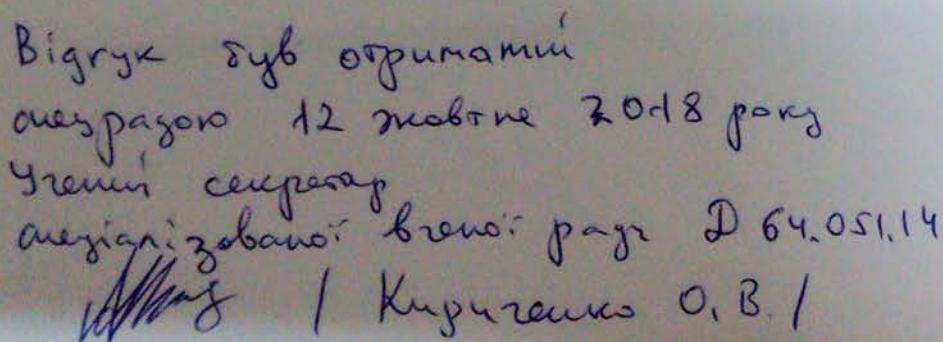 Відгук був отриманий
спецрадою 12 жовтня 2018 року
Учений секретар
спеціалізованої вченої ради Д 64.051.14
/ Кириченко О.В. /